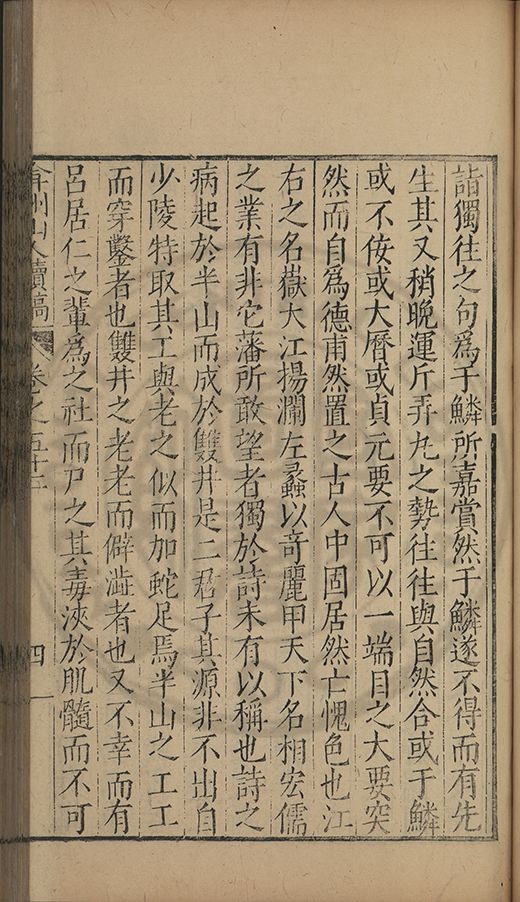 詣獨往之句爲于鱗所嘉賞然于鱗遂不得而有先
生其又稍晚運斤弄丸之勢往往與自然合或于鱗
或不佞或大曆或貞元要不可以一端目之大要突
然而自爲德甫然置之古人中固居然亡愧色也江
右之名嶽大江揚瀾左蠡以竒麗甲天下名相宏儒
之業有非它藩所敢望者獨於詩未有以稱也詩之
病起於半山而成於雙井是二君子其源非不出自
少陵特取其工與老之似而加蛇足焉半山之工工
而穿鑿者也雙井之老老而僻澁者也又不幸而有
呂居仁之輩爲之社而尸之其毒浹於肌髓而不可
弇州山人續稿 卷之五十二 四